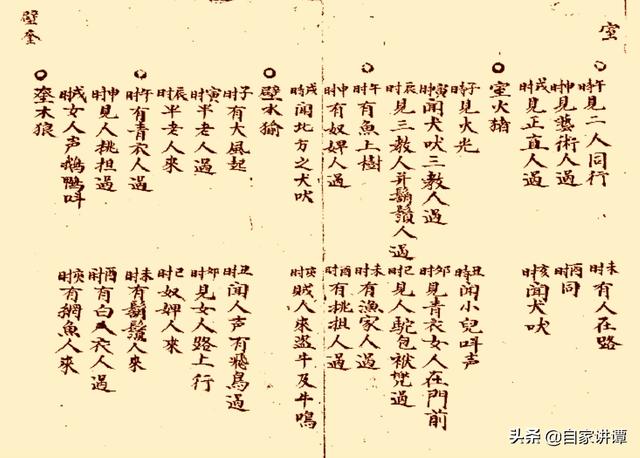 室
午时見二人同行 未时有人在路
申时見藝術人過 酉时同
戌时見正直人過 亥时聞犬吠
室火猪
子时見火光 丑时聞小兒叫声
寅时聞犬吠三教人過 卯时見青衣女人在門前
辰时見三教人并鬍鬚人過 巳时見人駝包袱凳過
午时有魚上樹 未时有漁家人過
申时有奴婢人過 酉时有挑担人過
戌时聞北方之犬吠 亥时賊人來盜牛及牛鳴
壁水㺄
子时有大風起 丑时聞人声有飛鳥過
寅时半老人過 卯时見女人路上行
辰时半老人來 巳时奴婢人來
午时有青衣人過 未时有鬍鬚人來
申时見人挑担過 酉时有白衣人過
戌时女人声鵝鴨叫 亥时有網魚人來
奎木狼
壁奎
头条 @自家讲谭